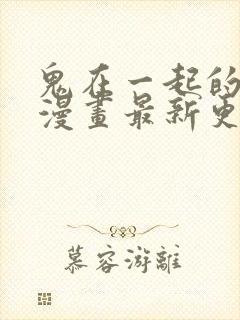 鬼在一起的
漫畫最新更
慕容游離